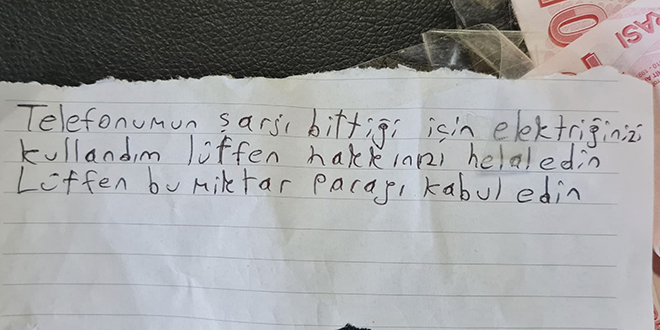 Telefonumun şarşı bittiği için elektriğinizi
kullandım lütfen hakkınızı helal edin
Lütfen bu miktar parayı kabul edin